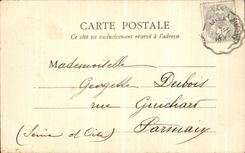 CARTE POSTALE
Ce côté est exclusivement réservé à l'adresse
Mademoiselle
Georgette Dubois
rue Guichard
(Seine et Oise) Sarmaix